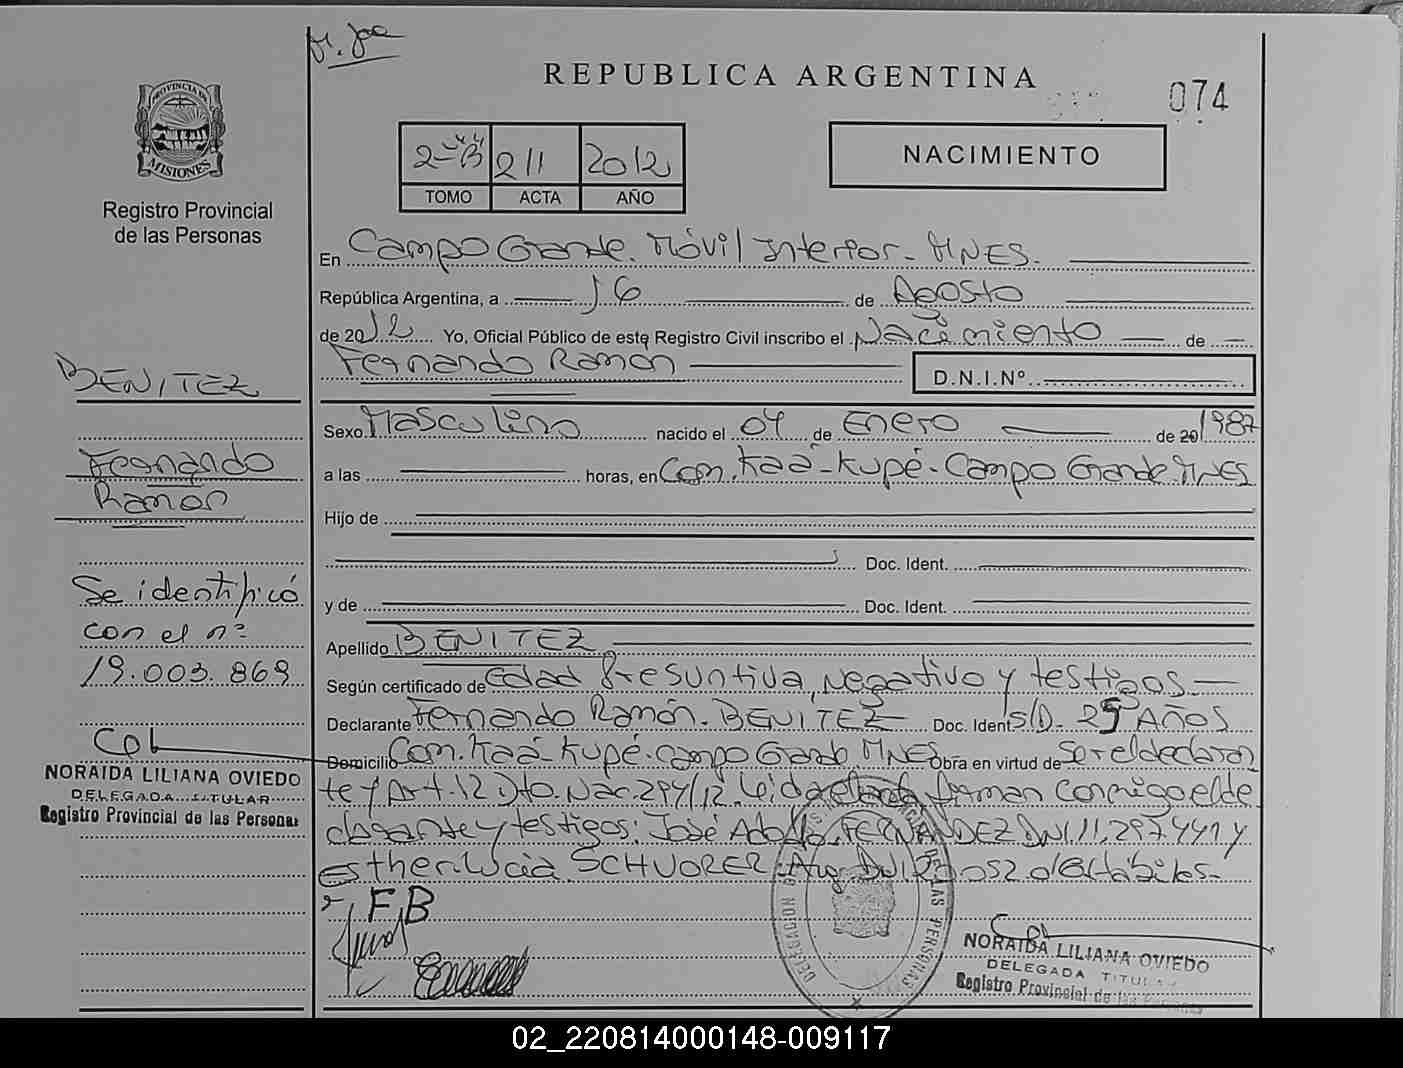 REPUBLICA ARGENTINA
074
PROVINCIA DE
MISIONES
Registro Provincial
de las Personas
2-"B" 211 2012
TOMO ACTA AÑO
NACIMIENTO
En Campo Grande. Móvil Interior - MNES.
República Argentina, a 16 de Agosto
de 2012 Yo, Oficial Público de este Registro Civil inscribo el Nacimiento de
Fernando Ramón
D.N.I.Nº
Sexo Masculino nacido el 04 de Enero de 20 1987
a las horas, en Com. Kaá-Kupé - Campo Grande MNES
Hijo de
Doc. Ident.
y de Doc. Ident.
Apellido BENITEZ
Según certificado de edad Presuntiva, negativo y testigos.
Declarante Fernando Ramón - BENITEZ Doc. Ident S/D - 25 AÑOS
Domicilio Com. Kaá-Kupé - Campo Grande MNES Obra en virtud de ser el declaran
te y Art. 12 Dto. Nac. 294/12. Leída el acta firman conmigo el de
clarante y testigos: José Adolfo FERNANDEZ DNI. 11.297.441 y
Esther Lucía SCHUORER Arg. DNI 23.052. Hábiles-
FB
BENITEZ
Fernando
Ramón
Se identificó
con el nº
19.003.869
NORAIDA LILIANA OVIEDO
DELEGADA TITULAR
Registro Provincial de las Personas
DELEGACION DE LAS PERSONAS
NORAIDA LILIANA OVIEDO
DELEGADA TITULAR
Registro Provincial de las Personas
02_220814000148-009117